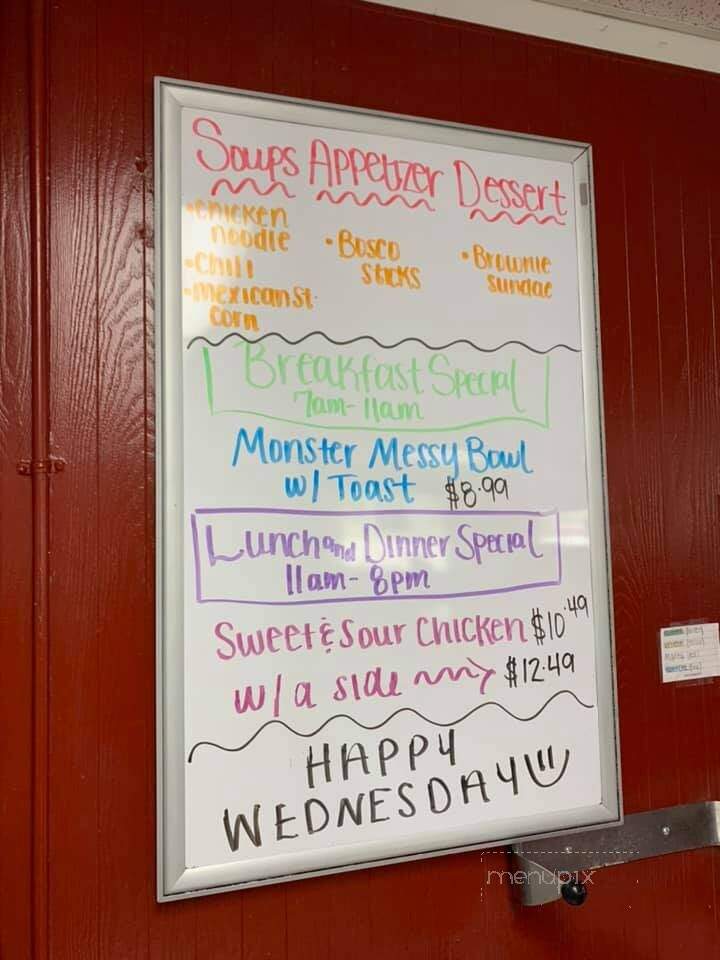 Soups Appetizer Dessert
•Chicken
noodle
•Chili
•mexican St.
corn
•Bosco
sticks
•Brownie
sundae
Breakfast Special
7am-11am
Monster Messy Bowl
w/ Toast $8.99
Lunch and Dinner Special
11am-8pm
Sweet & Sour Chicken $10.49
w/ a side $12.49
HAPPY
WEDNESDAY
menupix